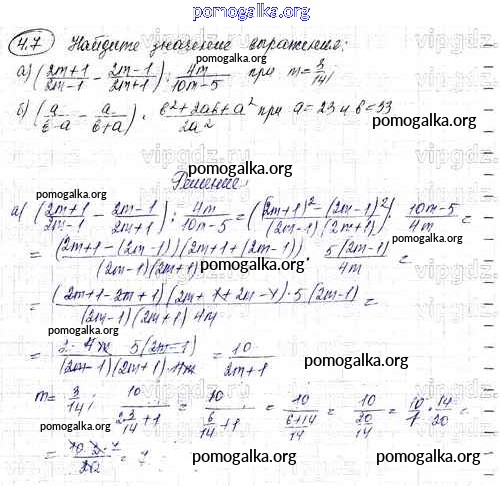 pomogalka.org
4.7 Найдите значение выражения:
а) ((2m+1)/(2m-1) - (2m-1)/(2m+1)) : 4m/(10m-5) при m = 3/14;
pomogalka.org
б) (a/(b-a) - a/(b+a)) · (b²+2ab+a²)/(2a²) при a=23 и b=33
pomogalka.org
pomogalka.org
Решение
pomogalka.org
pomogalka.org
а) ((2m+1)/(2m-1) - (2m-1)/(2m+1)) : 4m/(10m-5) = ((2m+1)² - (2m-1)²)/((2m-1)(2m+1)) · (10m-5)/4m =
= ((2m+1-(2m-1))(2m+1+(2m-1)))/((2m-1)(2m+1)) · 5(2m-1)/4m =
pomogalka.org
= ((2m+1-2m+1)(2m+1+2m-1)·5(2m-1))/((2m-1)(2m+1)4m) =
pomogalka.org
= (2·4m·5(2m-1))/((2m-1)(2m+1)·4m) = 10/(2m+1)
pomogalka.org
m = 3/14; 10/(2·3/14+1) = 10/(6/14+1) = 10/((6+14)/14) = 10/(20/14) = 10/1 · 14/20 =
pomogalka.org
= 7
pomogalka.org
pomogalka.org